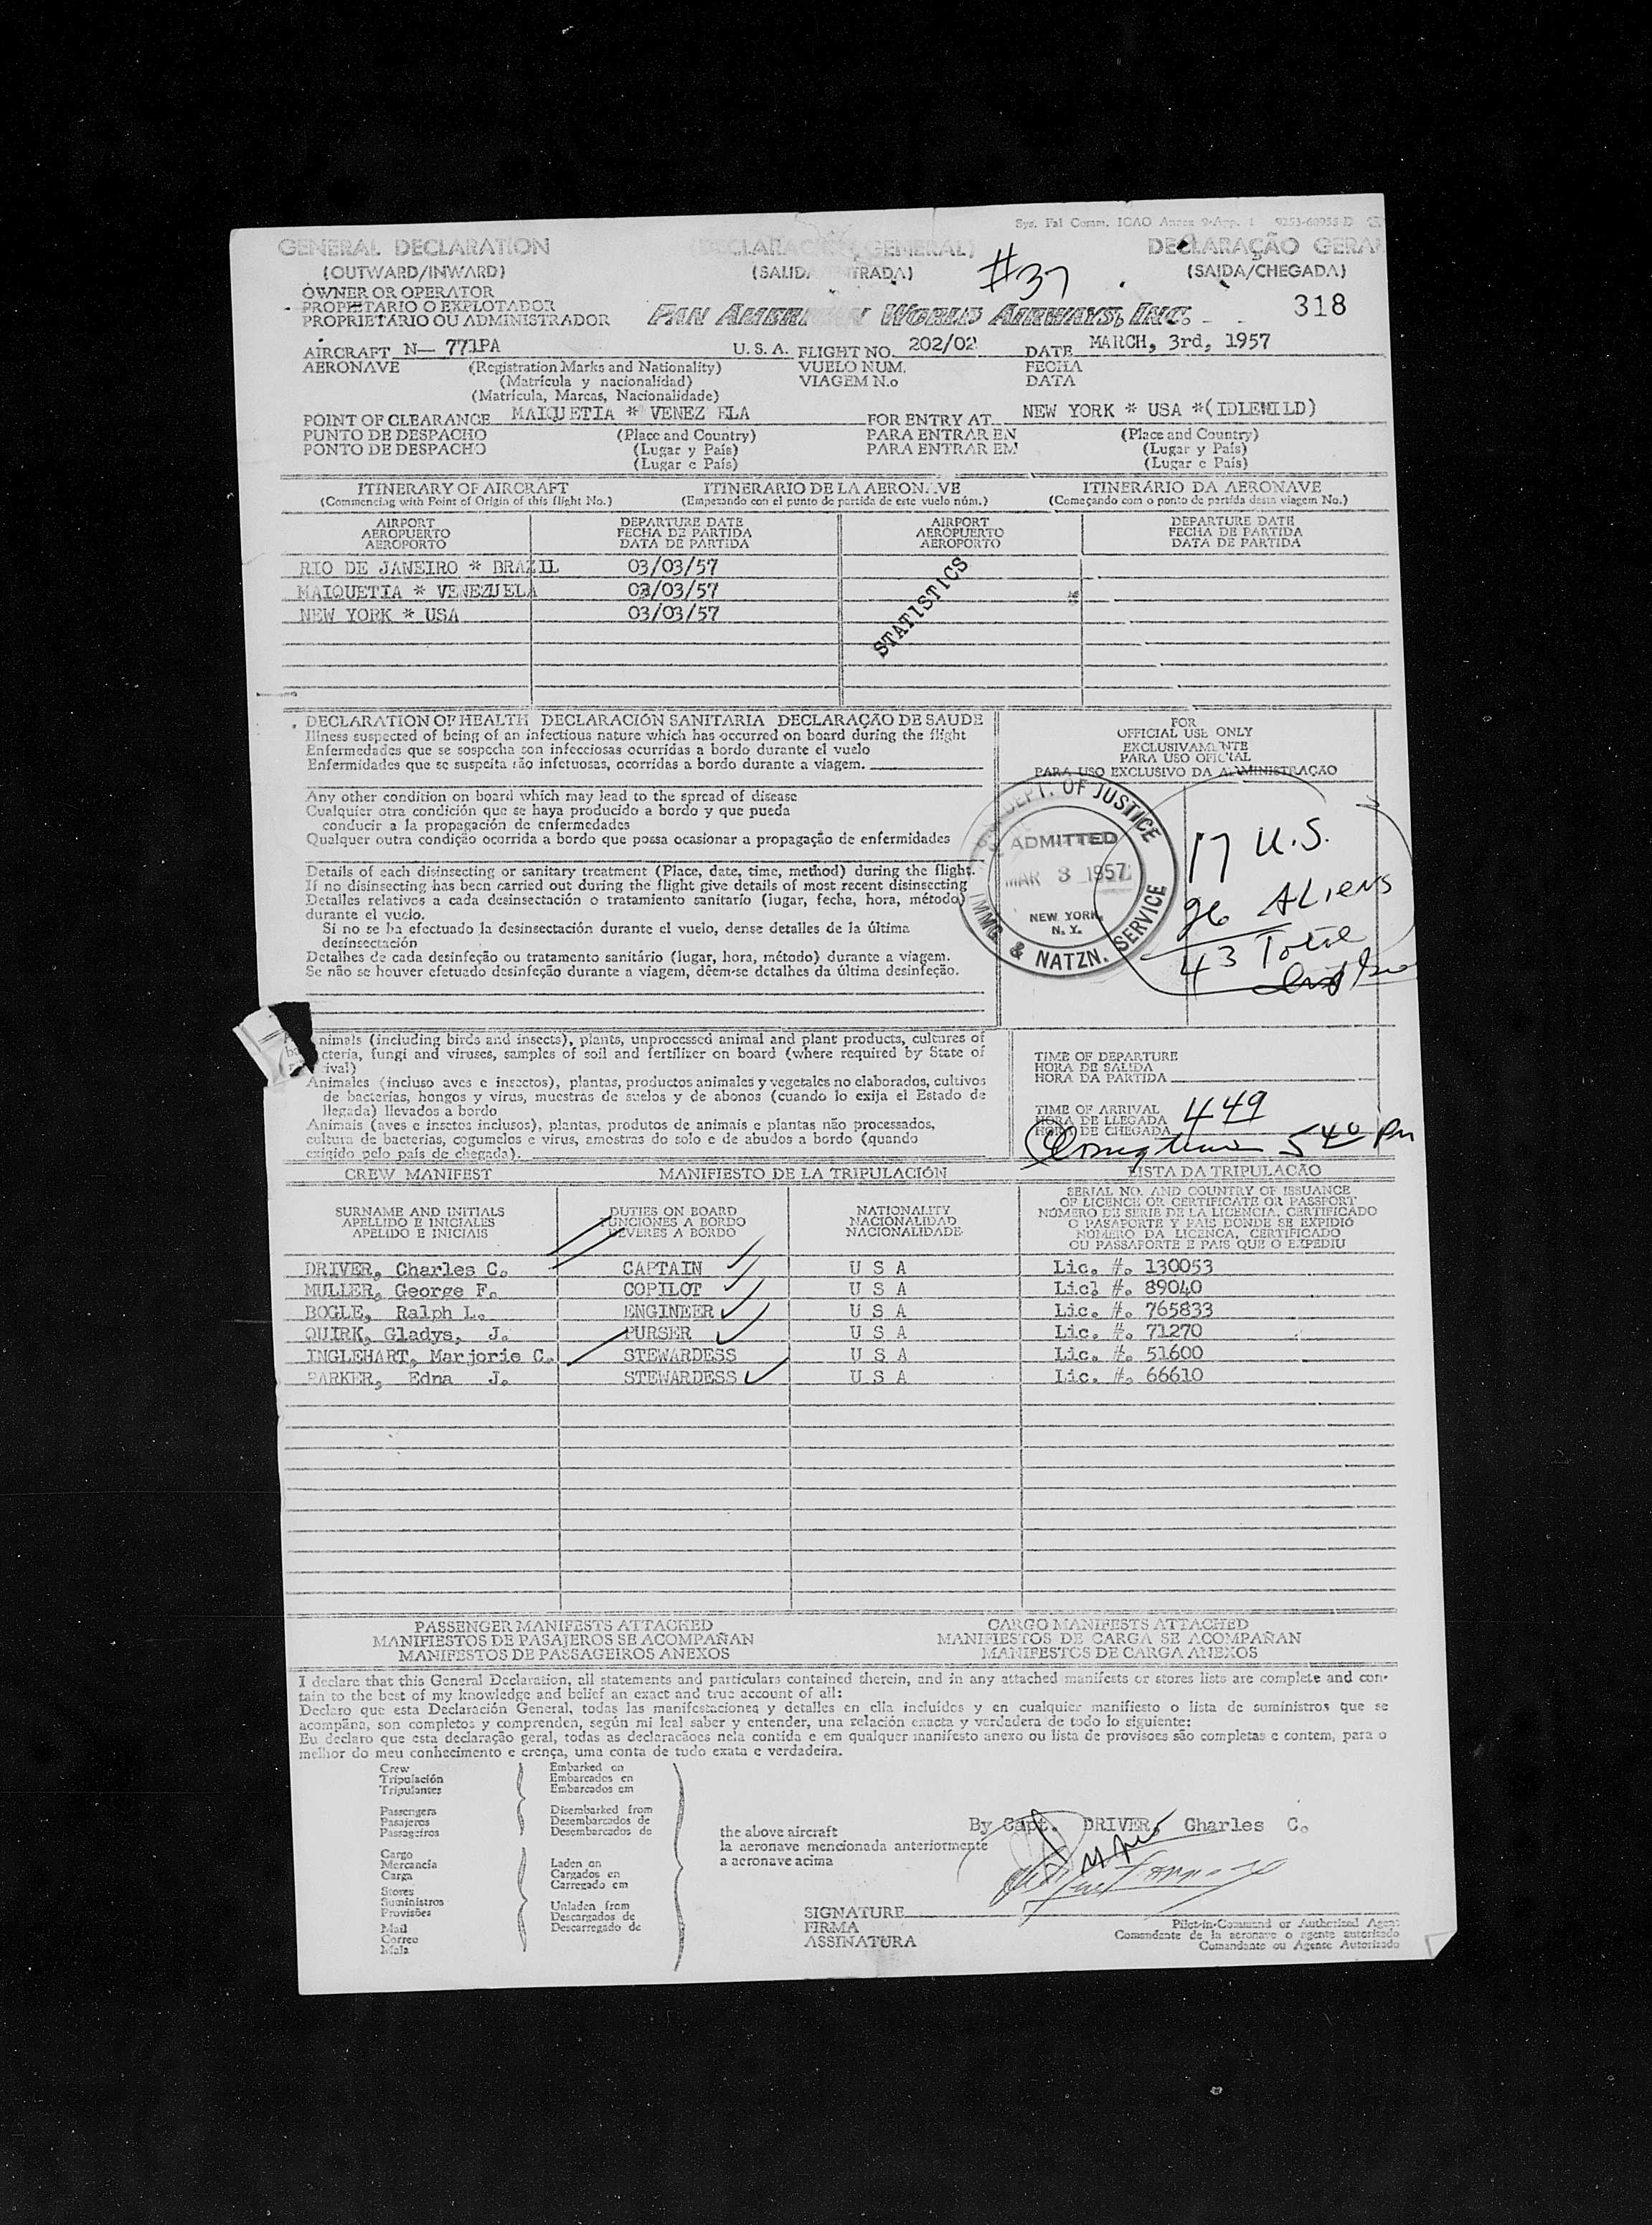 Sys. Fal Comm. ICAO Annex 9-App. 1 9253-60955 D
GENERAL DECLARATION (DECLARACIÓN GENERAL) DECLARAÇÃO GERAL
(OUTWARD/INWARD) (SALIDA ENTRADA) #37 (SAIDA/CHEGADA)
OWNER OR OPERATOR
PROPIETARIO O EXPLOTADOR
PROPRIETÁRIO OU ADMINISTRADOR PAN AMERICAN WORLD AIRWAYS, INC. 318
AIRCRAFT N— 771PA U. S. A. FLIGHT NO. 202/02 DATE MARCH, 3rd, 1957
AERONAVE (Registration Marks and Nationality) VUELO NUM. FECHA
(Matrícula y nacionalidad) VIAGEM N.o DATA
(Matrícula, Marcas, Nacionalidade)
POINT OF CLEARANCE MAIQUETIA * VENEZ ELA FOR ENTRY AT NEW YORK * USA *(IDLEWILD)
PUNTO DE DESPACHO (Place and Country) PARA ENTRAR EN (Place and Country)
PONTO DE DESPACHO (Lugar y País) PARA ENTRAR EM (Lugar y País)
(Lugar e País) (Lugar e País)
ITINERARY OF AIRCRAFT ITINERARIO DE LA AERONAVE ITINERÁRIO DA AERONAVE
(Commencing with Point of Origin of this flight No.) (Empezando con el punto de partida de este vuelo núm.) (Começando com o ponto de partida desta viagem No.)
AIRPORT DEPARTURE DATE AIRPORT DEPARTURE DATE
AEROPUERTO FECHA DE PARTIDA AEROPUERTO FECHA DE PARTIDA
AEROPORTO DATA DE PARTIDA AEROPORTO DATA DE PARTIDA
RIO DE JANEIRO * BRAZIL 03/03/57
MAIQUETIA * VENEZUELA 03/03/57
NEW YORK * USA 03/03/57
STATISTICS
DECLARATION OF HEALTH DECLARACIÓN SANITARIA DECLARAÇÃO DE SAUDE
Illness suspected of being of an infectious nature which has occurred on board during the flight
Enfermedades que se sospecha son infecciosas ocurridas a bordo durante el vuelo
Enfermidades que se suspeita são infetuosas, ocorridas a bordo durante a viagem.
Any other condition on board which may lead to the spread of disease
Cualquier otra condición que se haya producido a bordo y que pueda
conducir a la propagación de enfermedades
Qualquer outra condição ocorrida a bordo que possa ocasionar a propagação de enfermidades
Details of each disinsecting or sanitary treatment (Place, date, time, method) during the flight.
If no disinsecting has been carried out during the flight give details of most recent disinsecting
Detalles relativos a cada desinsectación o tratamiento sanitario (lugar, fecha, hora, método)
durante el vuelo.
Si no se ha efectuado la desinsectación durante el vuelo, dense detalles de la última
desinsectación
Detalhes de cada desinfeção ou tratamento sanitário (lugar, hora, método) durante a viagem.
Se não se houver efetuado desinfeção durante a viagem, dêem-se detalhes da última desinfeção.
FOR
OFFICIAL USE ONLY
EXCLUSIVAMENTE
PARA USO OFICIAL
PARA USO EXCLUSIVO DA ADMINISTRAÇÃO
DEPT. OF JUSTICE
ADMITTED
MAR 3 1957
NEW YORK,
N. Y.
IMMG. & NATZN. SERVICE
17 U.S.
26 ALiens
43 Total
nimals (including birds and insects), plants, unprocessed animal and plant products, cultures of
cteria, fungi and viruses, samples of soil and fertilizer on board (where required by State of
ival)
Animales (incluso aves e insectos), plantas, productos animales y vegetales no elaborados, cultivos
de bacterias, hongos y virus, muestras de suelos y de abonos (cuando lo exija el Estado de
llegada) llevados a bordo
Animais (aves e insetos inclusos), plantas, produtos de animais e plantas não processados,
cultura de bacterias, cogumelos e virus, amostras do solo e de abudos a bordo (quando
exigido pelo país de chegada).
TIME OF DEPARTURE
HORA DE SALIDA
HORA DA PARTIDA
TIME OF ARRIVAL 449
HORA DE LLEGADA
HORA DE CHEGADA
540 Pm
CREW MANIFEST MANIFIESTO DE LA TRIPULACIÓN LISTA DA TRIPULACÃO
SURNAME AND INITIALS DUTIES ON BOARD NATIONALITY SERIAL NO. AND COUNTRY OF ISSUANCE
APELLIDO E INICIALES FUNCIONES A BORDO NACIONALIDAD OF LICENCE OR CERTIFICATE OR PASSPORT
APELIDO E INICIAIS DEVERES A BORDO NACIONALIDADE NÚMERO DE SERIE DE LA LICENCIA, CERTIFICADO
O PASAPORTE Y PAIS DONDE SE EXPIDIÓ
NÚMERO DA LICENCA, CERTIFICADO
OU PASSAPORTE E PAIS QUE O EXPEDIU
DRIVER, Charles C. CAPTAIN U S A Lic. #. 130053
MULLER, George F. COPILOT U S A Lic. #. 89040
BOGLE, Ralph L. ENGINEER U S A Lic. #. 765833
QUIRK, Gladys, J. PURSER U S A Lic. #. 71270
INGLEHART, Marjorie C. STEWARDESS U S A Lic. #. 51600
PARKER, Edna J. STEWARDESS U S A Lic. #. 66610
PASSENGER MANIFESTS ATTACHED CARGO MANIFESTS ATTACHED
MANIFIESTOS DE PASAJEROS SE ACOMPAÑAN MANIFIESTOS DE CARGA SE ACOMPAÑAN
MANIFESTOS DE PASSAGEIROS ANEXOS MANIFESTOS DE CARGA ANEXOS
I declare that this General Declaration, all statements and particulars contained therein, and in any attached manifests or stores lists are complete and con-
tain to the best of my knowledge and belief an exact and true account of all:
Declaro que esta Declaración General, todas las manifestaciones y detalles en ella incluídos y en cualquier manifiesto o lista de suministros que se
acompaña, son completos y comprenden, según mi leal saber y entender, una relación exacta y verdadera de todo lo siguiente:
Eu declaro que esta declaração geral, todas as declaracãoes nela contida e em qualquer manifesto anexo ou lista de provisoes são completas e contem, para o
melhor do meu conhecimento e crença, uma conta de tudo exata e verdadeira.
Crew Embarked on
Tripulación Embarcados en
Tripulantes Embarcados em
Passengers Disembarked from
Pasajeros Desembarcados de
Passageiros Desembarcados de
the above aircraft
la aeronave mencionada anteriormente
a aeronave acima
By Capt. DRIVER, Charles C.
Cargo
Mercancía Laden on
Carga Cargados en
Stores Carregado em
Suministros
Provisões Unladen from
Mail Descargados de
Correo Descarregado de
Mala
SIGNATURE
FIRMA
ASSINATURA
Pilot-in-Command or Authorized Agent
Comandante de la aeronave o agente autorizado
Comandante ou Agente Autorizado